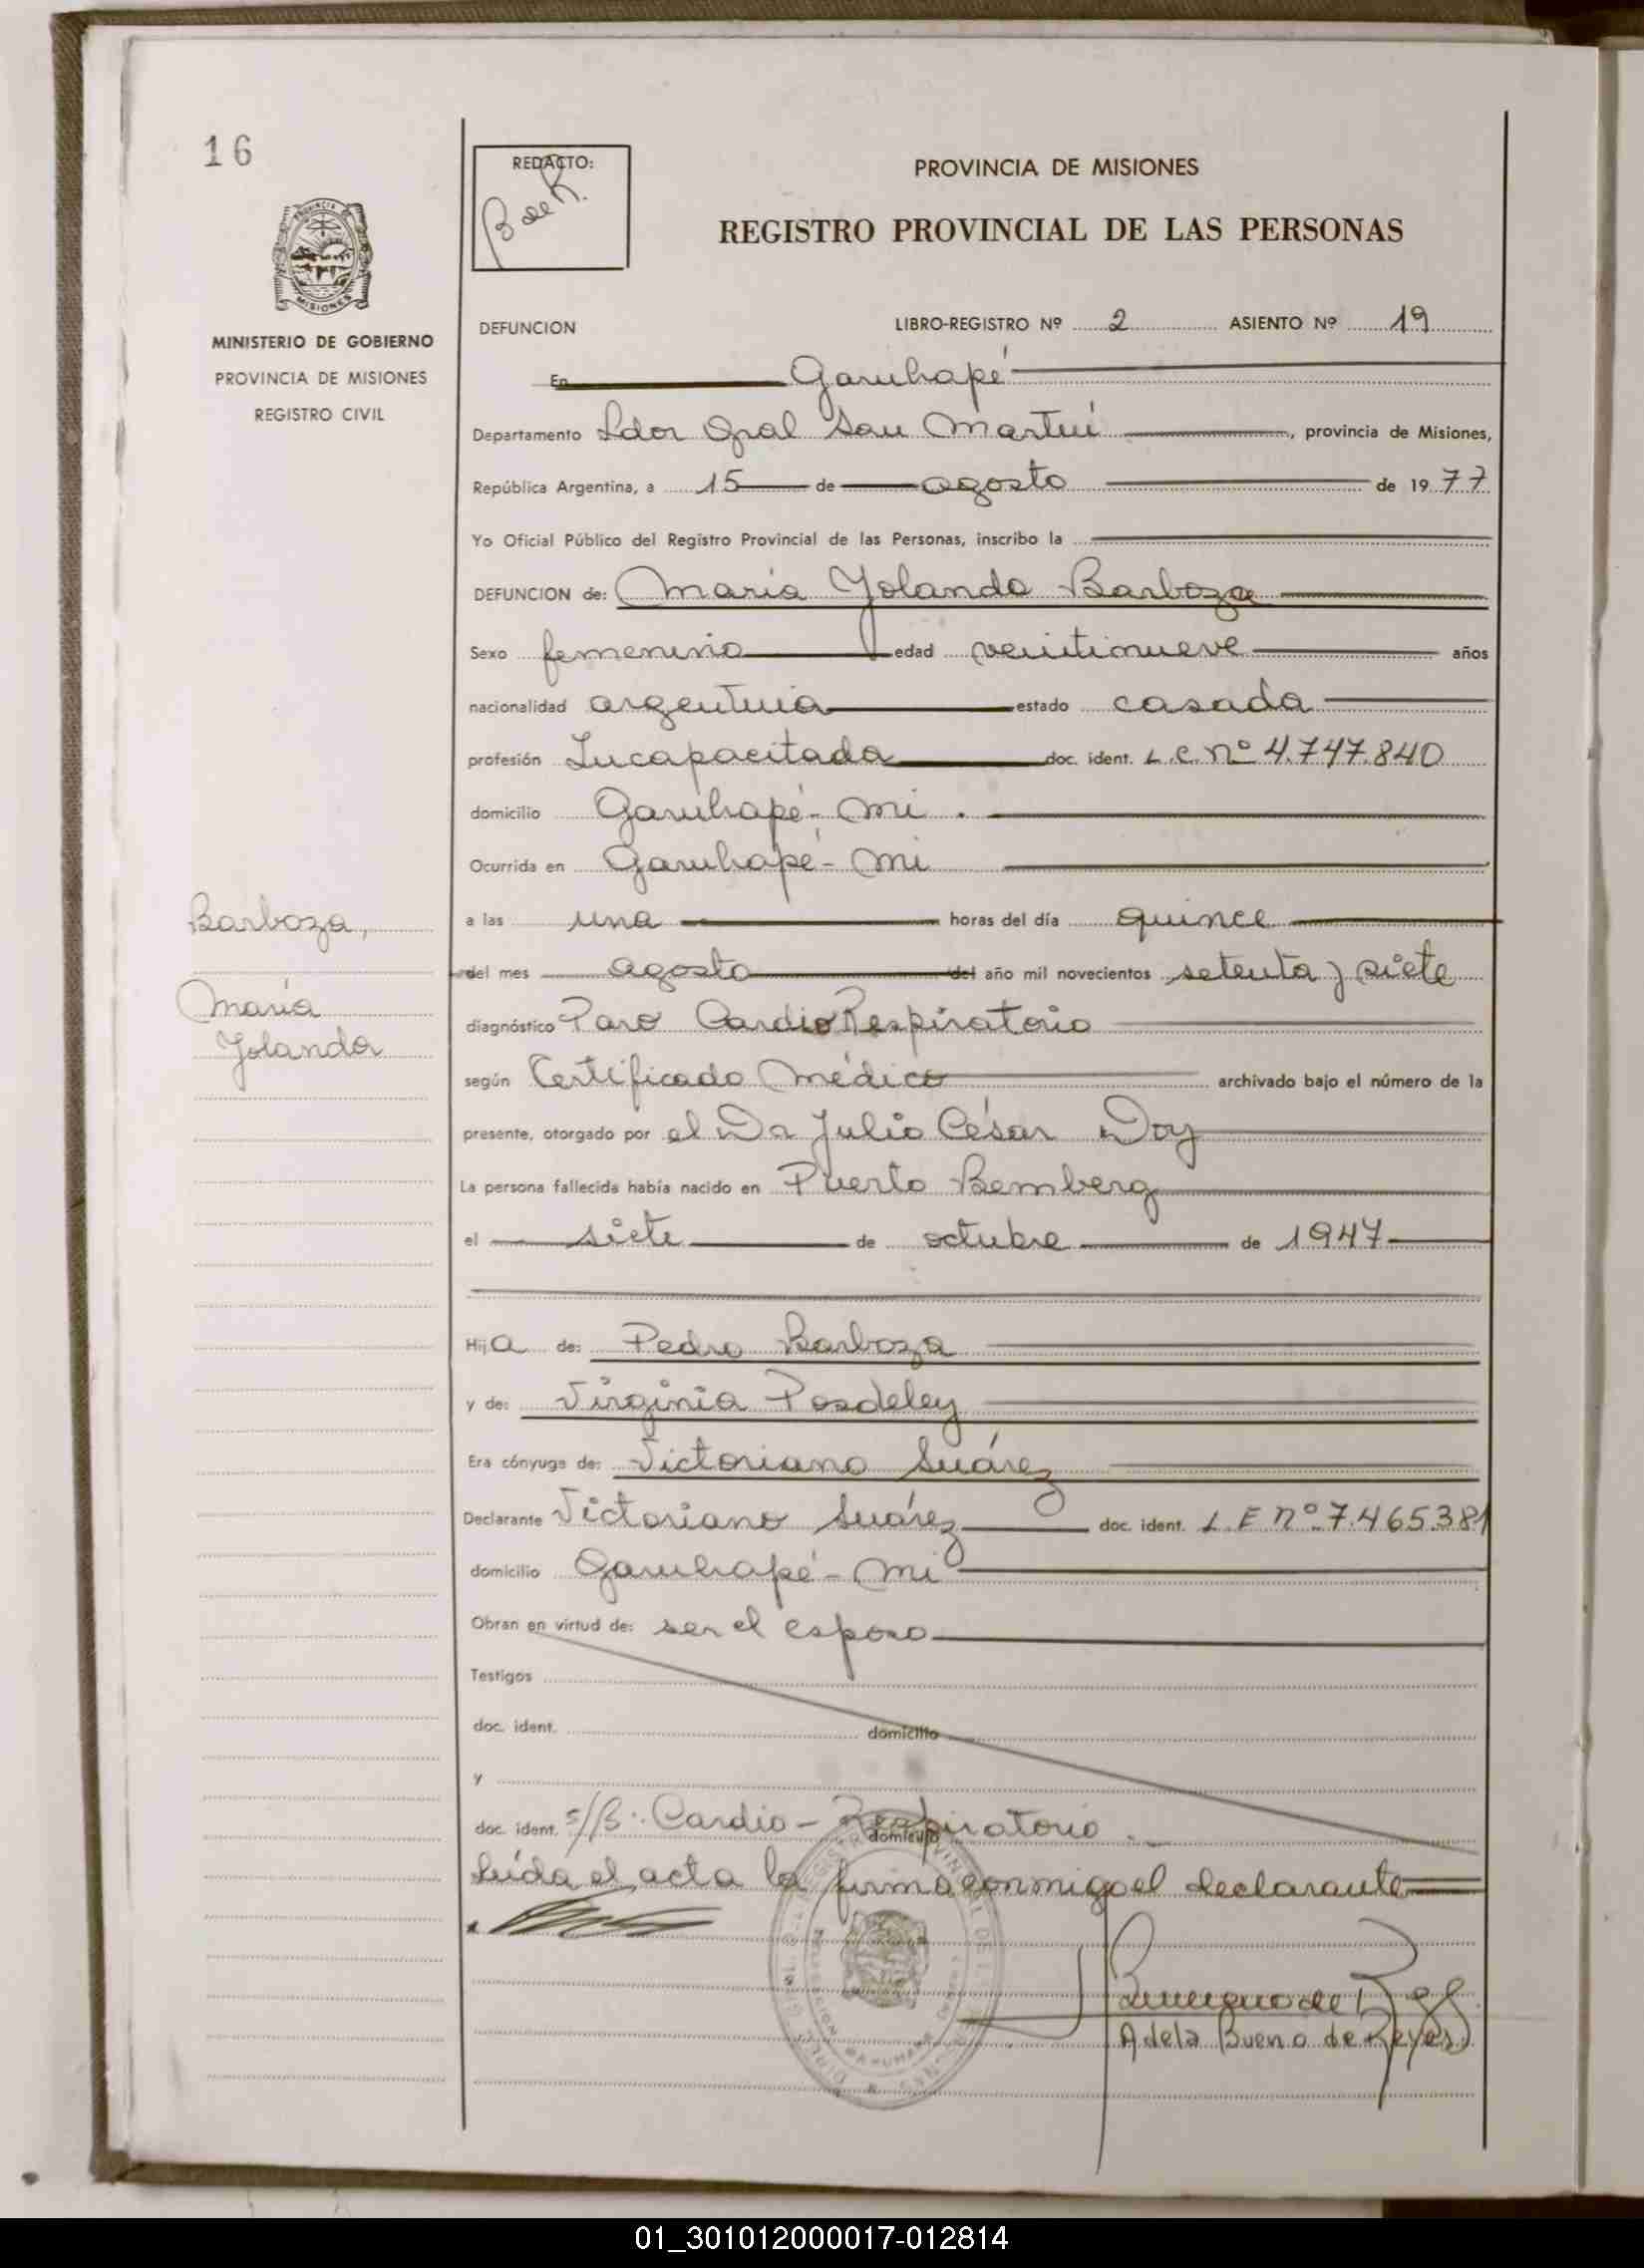 16
REDACTO:
B de R.
PROVINCIA DE MISIONES
REGISTRO PROVINCIAL DE LAS PERSONAS
MISIONES
MINISTERIO DE GOBIERNO
PROVINCIA DE MISIONES
REGISTRO CIVIL
DEFUNCION LIBRO-REGISTRO Nº 2 ASIENTO Nº 19
En Garuhapé
Departamento Ldor Gral San Martín, provincia de Misiones,
República Argentina, a 15 de agosto de 1977
Yo Oficial Público del Registro Provincial de las Personas, inscribo la
DEFUNCION de: María Yolanda Barboza
Sexo femenino edad veintinueve años
nacionalidad argentina estado casada
profesión Incapacitada doc. ident. L.C. nº 4.747.840
domicilio Garuhapé - Mi.
Ocurrida en Garuhapé - Mi
a las una horas del día quince
del mes agosto del año mil novecientos setenta y siete
diagnóstico Paro Cardio Respiratorio
según Certificado Médico archivado bajo el número de la
presente, otorgado por el Dr Julio César Doy
La persona fallecida había nacido en Puerto Bemberg
el siete de octubre de 1947
Hija de: Pedro Barboza
y de: Virginia Posdeley
Era cónyuge de: Victoriano Suárez
Declarante Victoriano Suárez doc. ident. L.E nº 7.465.381
domicilio Garuhapé - Mi
Obran en virtud de: ser el esposo
Testigos
doc. ident. domicilio
y
doc. ident. s/B: Cardio - Respiratorio. domicilio
Leída el acta la firma conmigo el declarante
Adela Bueno de Reyes
Barboza,
María
Yolanda
01_301012000017-012814